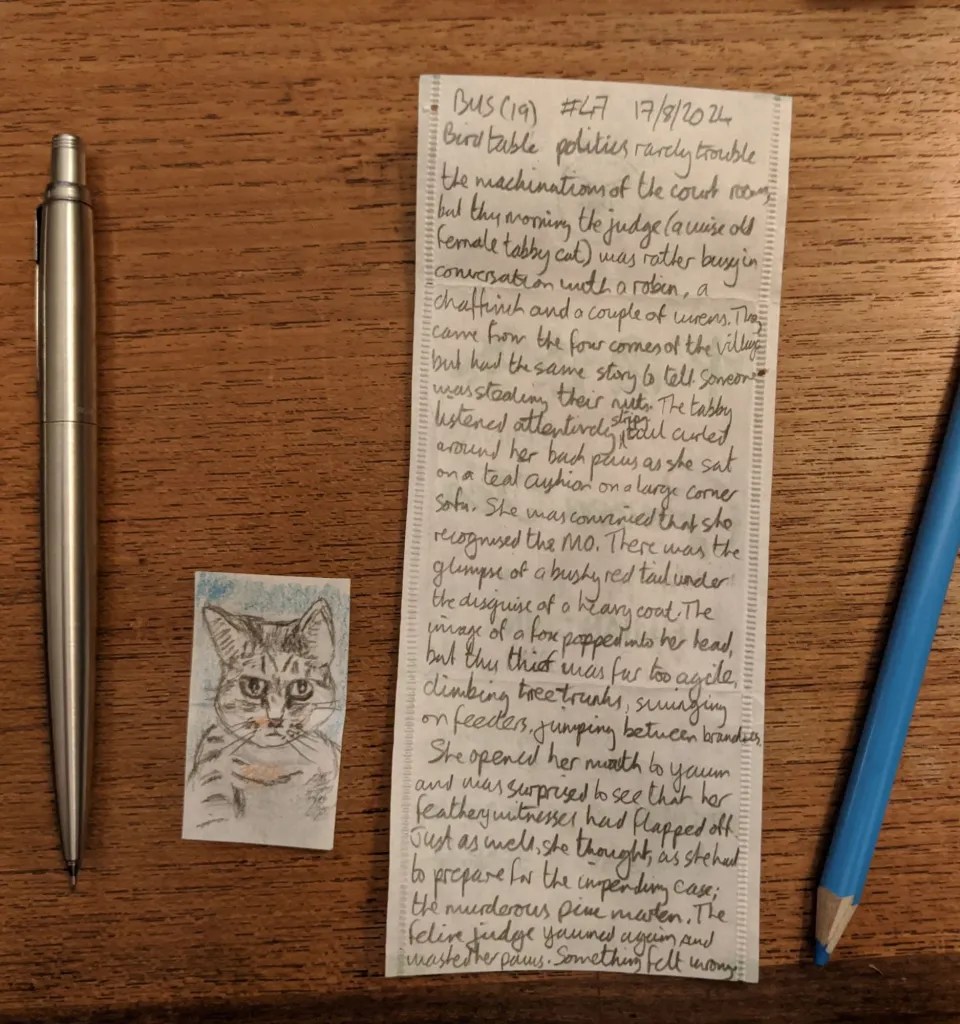 BUS (19) #47 17/8/2024
Bird table politics rarely trouble
the machinations of the court room,
but this morning the judge (a wise old
female tabby cat) was rather busy in
conversation with a robin, a
chaffinch and a couple of wrens. They
came from the four corners of the village
but had the same story to tell. Someone
was stealing their nuts. The tabby
listened attentively, stripy tail curled
around her back paws as she sat
on a teal cushion on a large corner
sofa. She was convinced that she
recognised the MO. There was the
glimpse of a bushy red tail under
the disguise of a heavy coat. The
image of a fox popped into her head,
but this thief was far too agile,
climbing tree trunks, swinging
on feeders, jumping between branches.
She opened her mouth to yawn
and was surprised to see that her
feathery witnesses had flapped off.
Just as well, she thought, as she had
to prepare for the impending case;
the murderous pine marten. The
feline judge yawned again and
washed her paws. Something felt wrong.